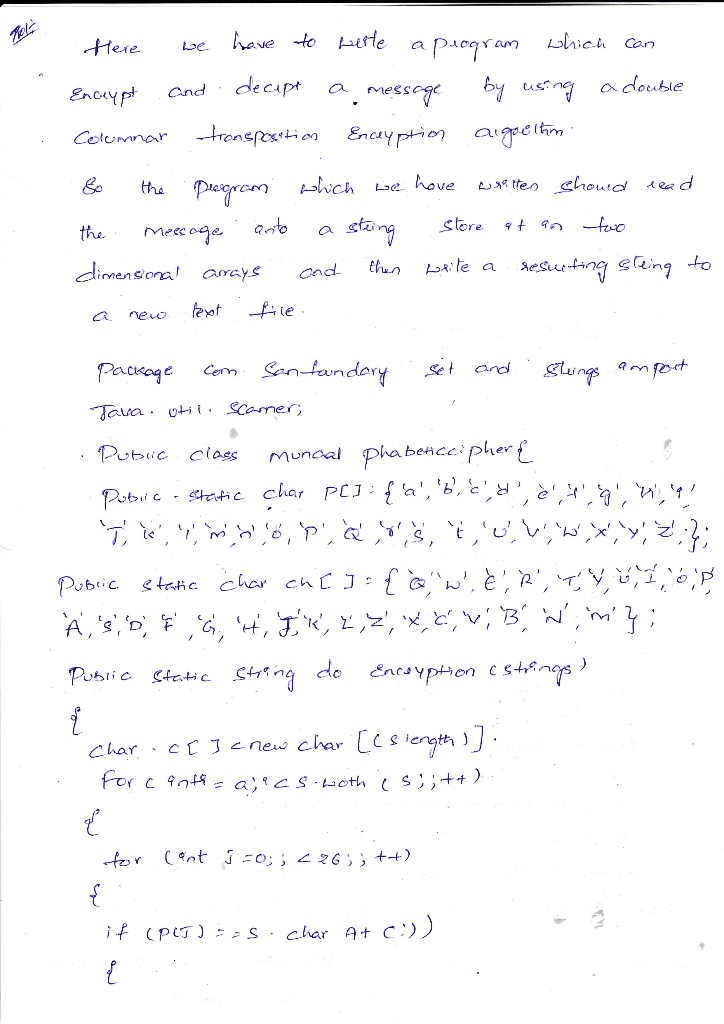 Sol:-
Here we have to write a program which can
Encrypt and decrpt a message by using a double
Columnar transposition Encryption algorithm.
So the program which we have written should read
the message into a string store it in two
dimensional arrays and then write a resulting string to
a new text file.
Package com. Sanfoundary set and Strings import
Java. util. Scanner;
Public class monoalphabeticcipher{
Public - static char P[J: { 'a', 'b', 'c', 'd', 'e', 'f', 'g', 'h', 'i'
'J', 'k', 'l', 'm', 'n', 'o', 'p', 'Q', 'r', 's', 't', 'u', 'v', 'w', 'x', 'y', 'z',;};
Public static char ch [ ] = { 'Q', 'w', 'E', 'R', 'T', 'Y', 'U', 'I', 'o', 'P'
'A', 'S', 'D', 'F', 'G', 'H', 'J', 'K', 'L', 'Z', 'X', 'C', 'V', 'B', 'N', 'm' } ;
Public static String do Encryption (strings)
{
char . c[ ] = new char [(s length)].
for ( inti = a; i < s. ( s); ; ++)
{
for (int J =0; ; < 26; ; ++)
{
if (P(J) = = s . char At C:))
{